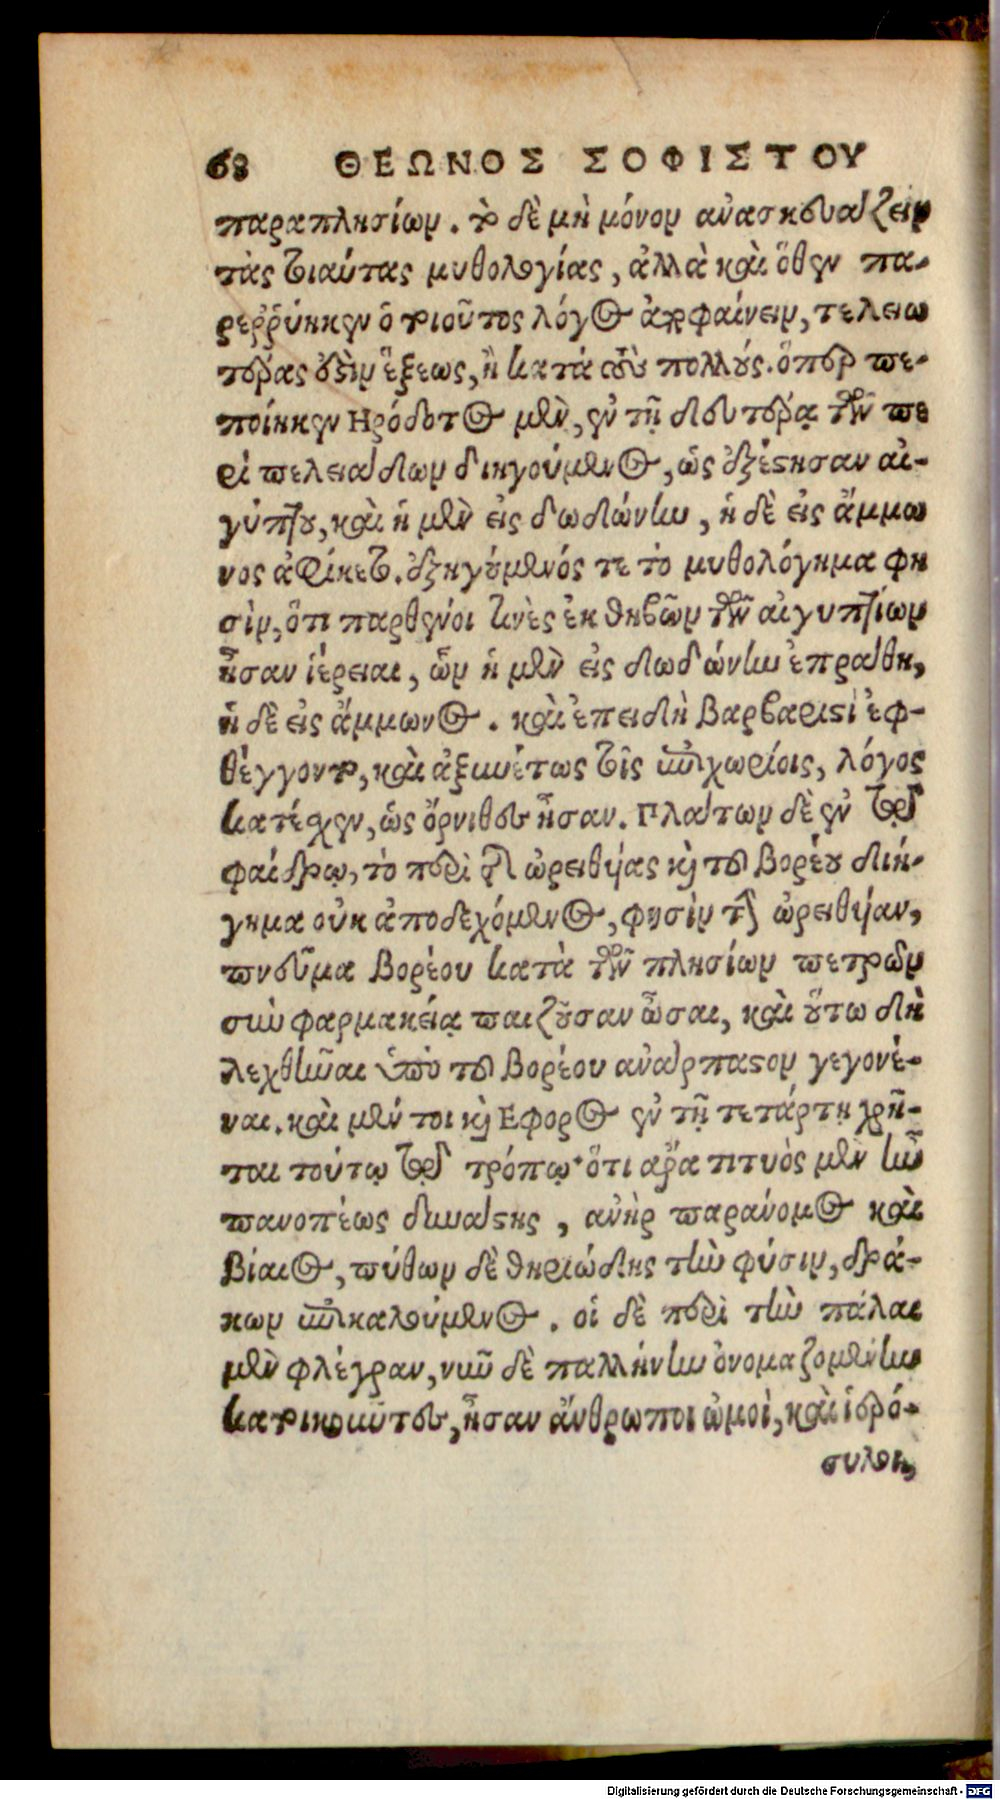 68 ΘΕΩΝΟΣ ΣΟΦΙΣΤΟΥ
παραπλησίων. τὸ δὲ μὴ μόνον ἀνασκευάζειν
τὰς τοιαύτας μυθολογίας, ἀλλὰ καὶ ὅθεν πα-
ρερῥύηκεν ὁ τοιοῦτος λόγος ἀποφαίνειν, τελειω
τέρας ἐστὶν ἕξεως, ἢ κατὰ τοὺς πολλούς. ὅπερ πε-
ποίηκεν Ηρόδοτος μὲν, ἐν τῇ δευτέρᾳ τῶν πε
ρὶ πελειάδων διηγούμενος, ὡς ἐξέπτησαν αἰ-
γύπτου, καὶ ἡ μὲν εἰς δωδώνην, ἡ δὲ εἰς ἄμμω
νος ἀφίκετο. ἐξηγούμενός τε τὸ μυθολόγημα φη
σὶν, ὅτι παρθένοι τινὲς ἐκ θηβῶν τῶν αἰγυπτίων
ἦσαν ἱέρειαι, ὧν ἡ μὲν εἰς δωδώνην ἐπράθη,
ἡ δὲ εἰς ἄμμωνος. καὶ ἐπειδὴ βαρβαριστὶ ἐφ-
θέγγοντο, καὶ ἀξυνέτως τοῖς ἐπιχωρίοις, λόγος
κατέχεν, ὡς ὄρνιθες ἦσαν. Πλάτων δὲ ἐν τῷ
φαίδρῳ, τὸ περὶ τῆς ὠρειθυίας καὶ τοῦ βορέου διή-
γημα οὐκ ἀποδεχόμενος, φησὶν τὴν ὠρειθυίαν,
πνεῦμα βορέου κατὰ τῶν πλησίων πετρῶν
σὺν φαρμακείᾳ παιζοῦσαν ὦσαι, καὶ οὕτω δὴ
λεχθῆναι ὑπὸ τοῦ βορέου ἀνάρπαστον γεγονέ-
ναι. καὶ μέν τοι καὶ Εφορος ἐν τῇ τετάρτῃ χρῆ-
ται τούτῳ τῷ τρόπῳ· ὅτι ἄρα τιτυὸς μὲν ἦν
πανοπέως δυνάστης, ἀνὴρ παράνομος καὶ
βίαιος, πύθων δὲ θηριώδης τὴν φύσιν, δρά-
κων ἐπικαλούμενος. οἱ δὲ περὶ τὴν πάλαι
μὲν φλέγραν, νῦν δὲ παλλήνην ὀνομαζομένην
κατοικοῦντες, ἦσαν ἄνθρωποι ὠμοὶ, καὶ ἱερό-
συλοι,
Digitalisierung gefördert durch die Deutsche Forschungsgemeinschaft - DFG